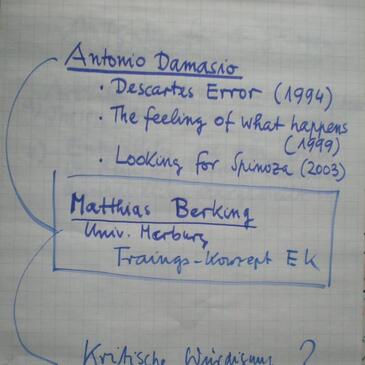 Antonio Damasio
• Descartes Error (1994)
• The feeling of what happens
(1999)
• Looking for Spinoza (2003)
Matthias Berking
Univ. Marburg
Trainings-Konzept EK
Kritische Würdigung ?